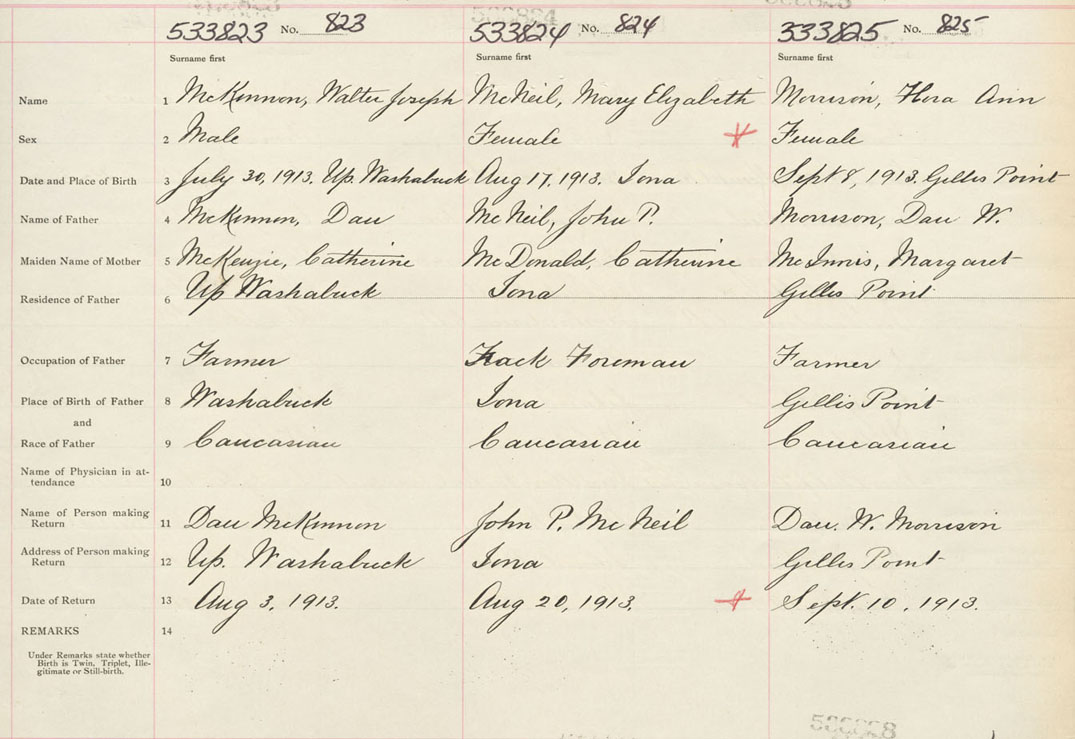 533823 No. 823 533824 No. 824 333825 No. 825
Surname first Surname first Surname first
Name 1 McKinnon, Walter Joseph McNeil, Mary Elizabeth Morrison, Flora Ann
Sex 2 Male Female Female
Date and Place of Birth 3 July 30, 1913. Up. Washabuck Aug 17, 1913. Iona Sept 8, 1913. Gillis Point
Name of Father 4 McKinnon, Dan McNeil, John P. Morrison, Dan W.
Maiden Name of Mother 5 McKenzie, Catherine McDonald, Catherine McInnis, Margaret
Residence of Father 6 Up Washabuck Iona Gillis Point
Occupation of Father 7 Farmer Track Foreman Farmer
Place of Birth of Father 8 Washabuck Iona Gillis Point
and
Race of Father 9 Caucasian Caucasian Caucasian
Name of Physician in at-
tendance 10
Name of Person making
Return 11 Dan McKinnon John P. McNeil Dan. W. Morrison
Address of Person making
Return 12 Up. Washabuck Iona Gillis Point
Date of Return 13 Aug 3, 1913. Aug 20, 1913. Sept. 10, 1913.
REMARKS 14
Under Remarks state whether
Birth is Twin, Triplet, Ille-
gitimate or Still-birth.